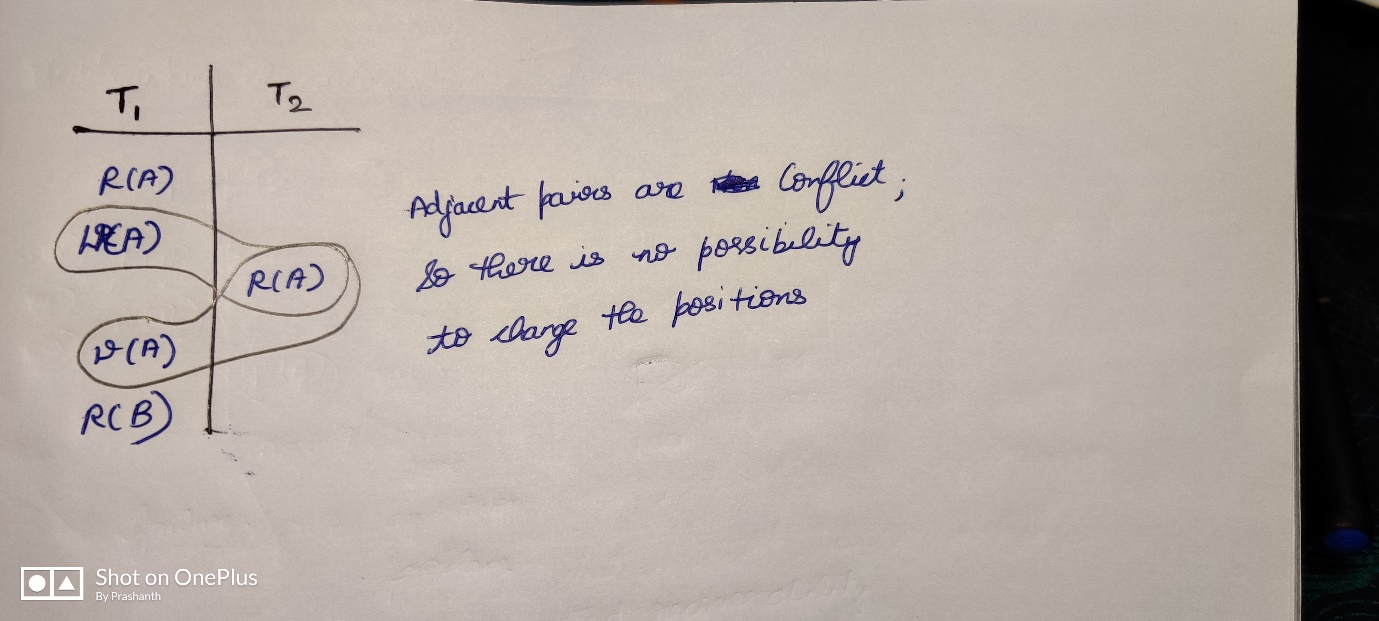 T1 T2
R(A)
W(A)
R(A)
W(A)
R(B)
Adjacent pairs are Conflict;
So there is no possibility
to change the positions
Shot on OnePlus
By Prashanth